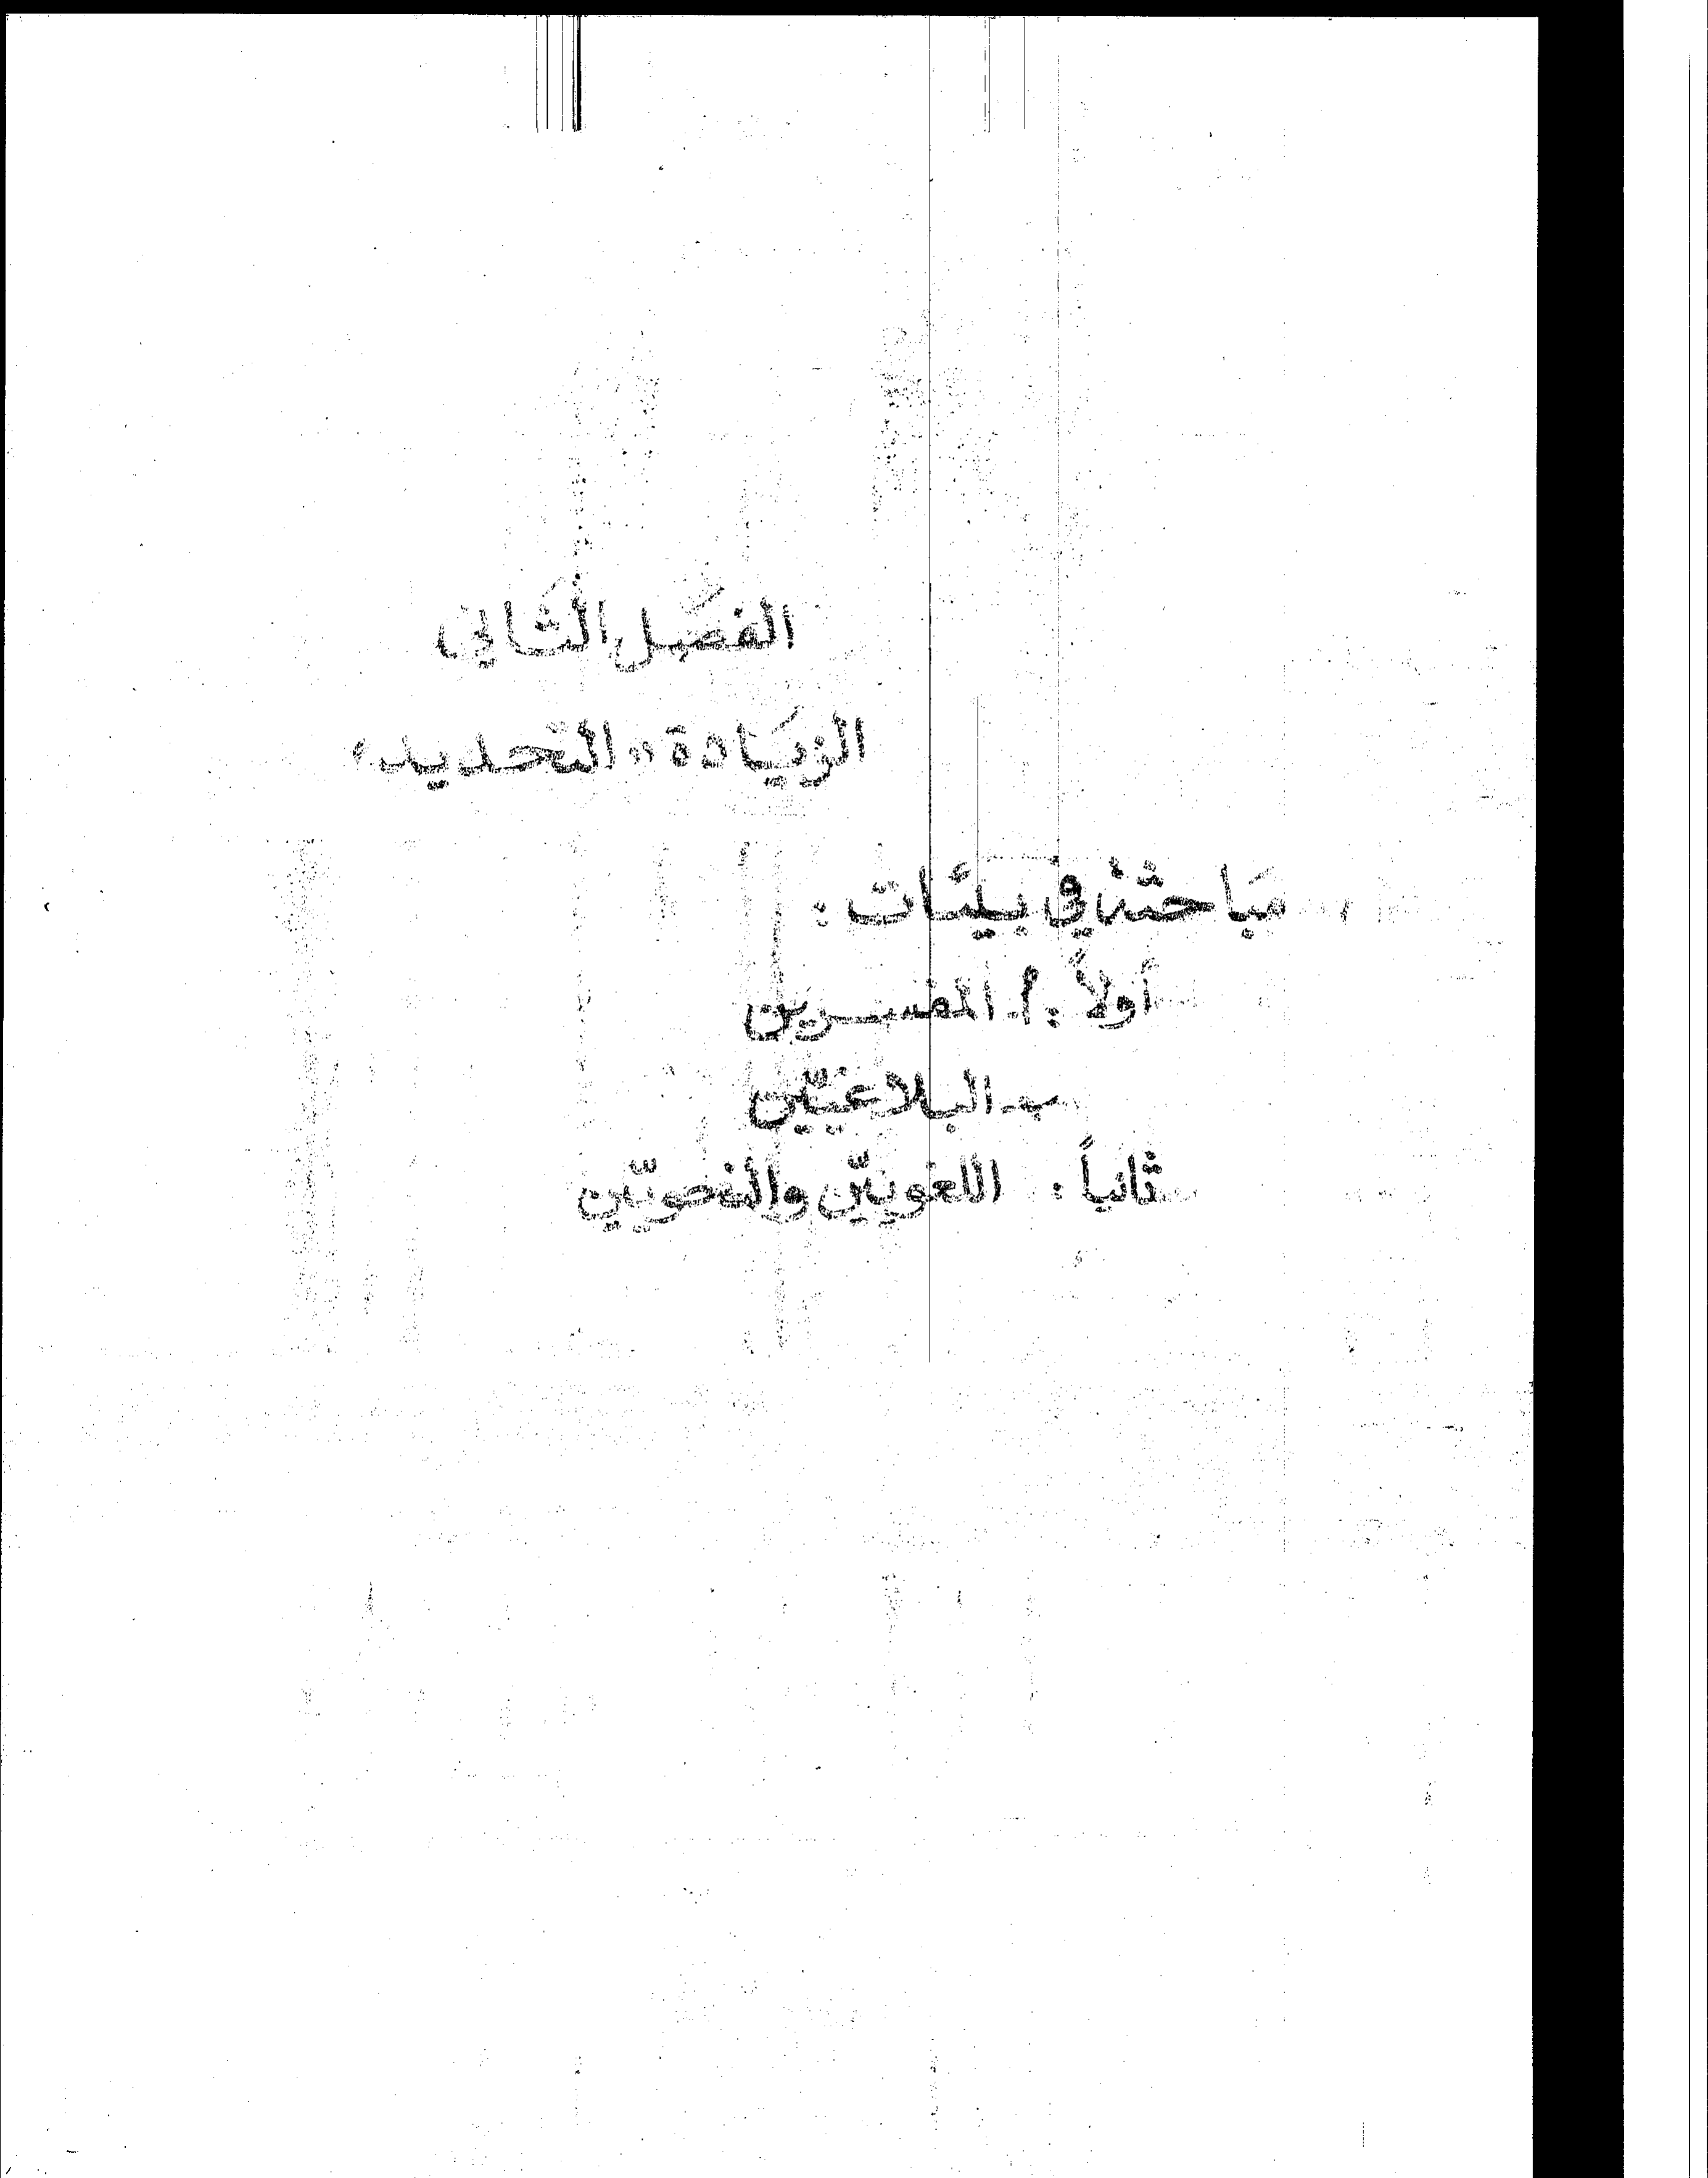 الفصل الثاني
الزيادة «التحديد»
مباحثة في بيئات :
أولاً : أ ـ المفسرين
ب ـ البلاغيّين
ثانياً : اللغويّين والنحويّين